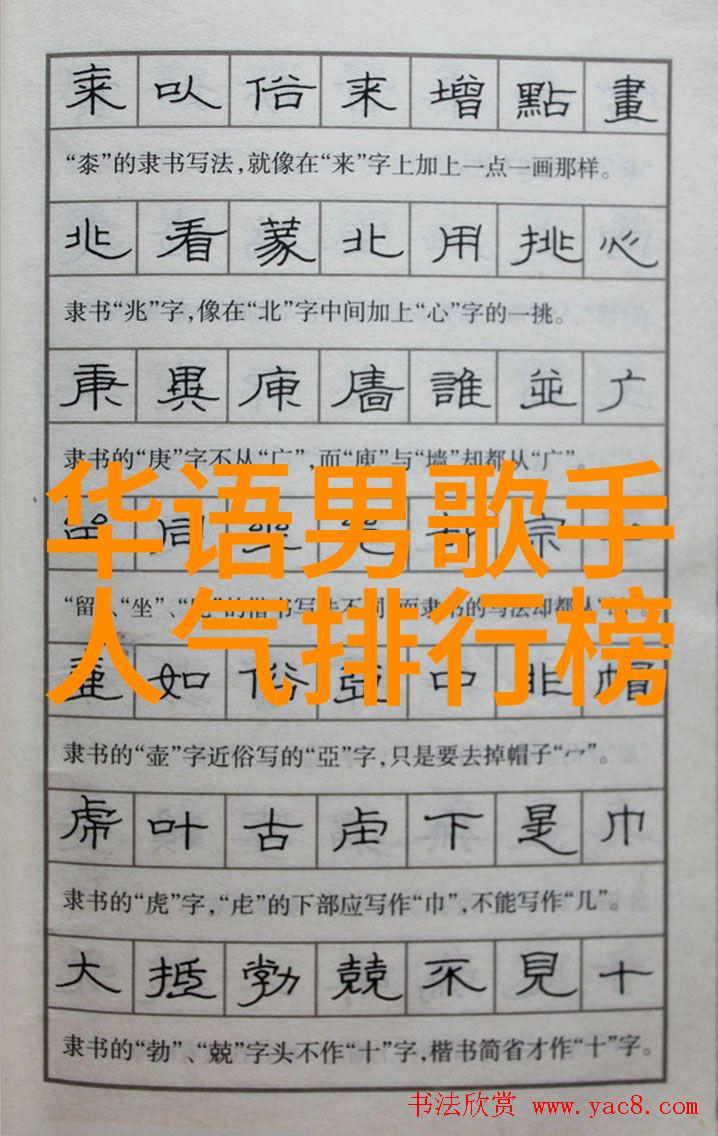 来 以 俗 来 增 點 畫
“桼”的隶书写法,就像在“来”字上加上一点一画那样。
兆 看 蒙 北 用 挑 心
隶书“兆”字,像在“北”字中间加上“心”字的一挑。
庚 異 庾 廧 誰 並 广
隶书的“庚”字不从“广”,而“庾”与“墙”却都从“广”。
华语男歌手
人气排行榜
同 部 宗
“留”、“坐”、的楷书写法不同,而隶书的写法却都从
壷 如 俗 亞 中 非 帽
隶书的“壶”字近俗写的“亞”字,只是要去掉帽子“宀”。
虎 叶 古 虍 下 是 巾
隶书的“虎”字,“虍”的下部应写作“巾”,不能写作“几”。
大 抵 勃 兢 不 見 十
隶书的“勃”、“兢”字头不作“十”字,楷书简省才作“十”字。
书法欣赏 www.yac8.com